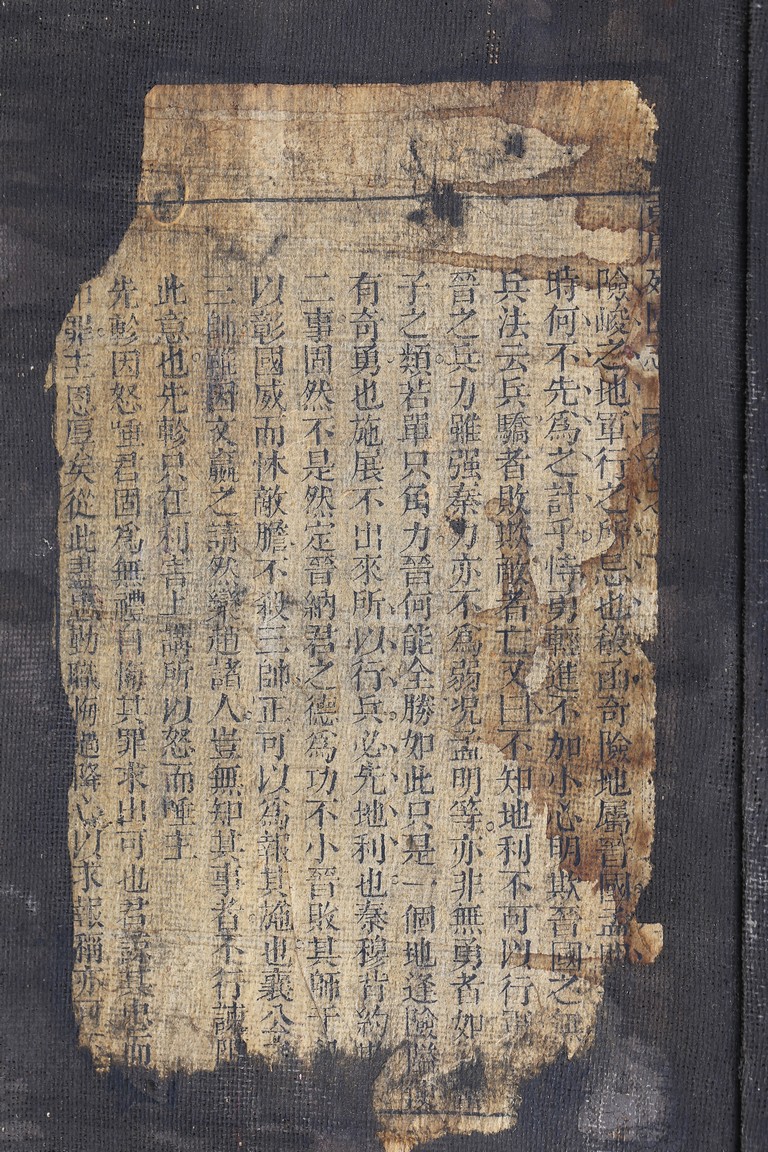 險峻之地軍行之所忌也殽函奇險地屬晉國孟
時何不先為之計乎恃勇輕進不加小心明欺晉國之無
兵法云兵驕者敗欺敵者亡又曰不知地利不可以行
晉之兵力雖强秦力亦不為弱况孟明等亦非無勇者如
子之類若單只角力晉何能全勝如此只是一個地逢險隘
有奇勇也施展不出來所以行兵必先地利也秦穆背約
二事固然不是然定晉納君之德為功不小晉敗其師于
以彰國威而怵敵膽不殺三帥正可以為報其施也襄公
三帥雖因文嬴之請然欒趙諸人豈無知其事者不行諫阻
此意也先軫只在利害上講所以怒而唾主
先軫因怒唾君固為無禮自悔其罪求出可也君諒其忠而
罪主恩厚矣從此盡勤職悔過降心以求報稱亦可